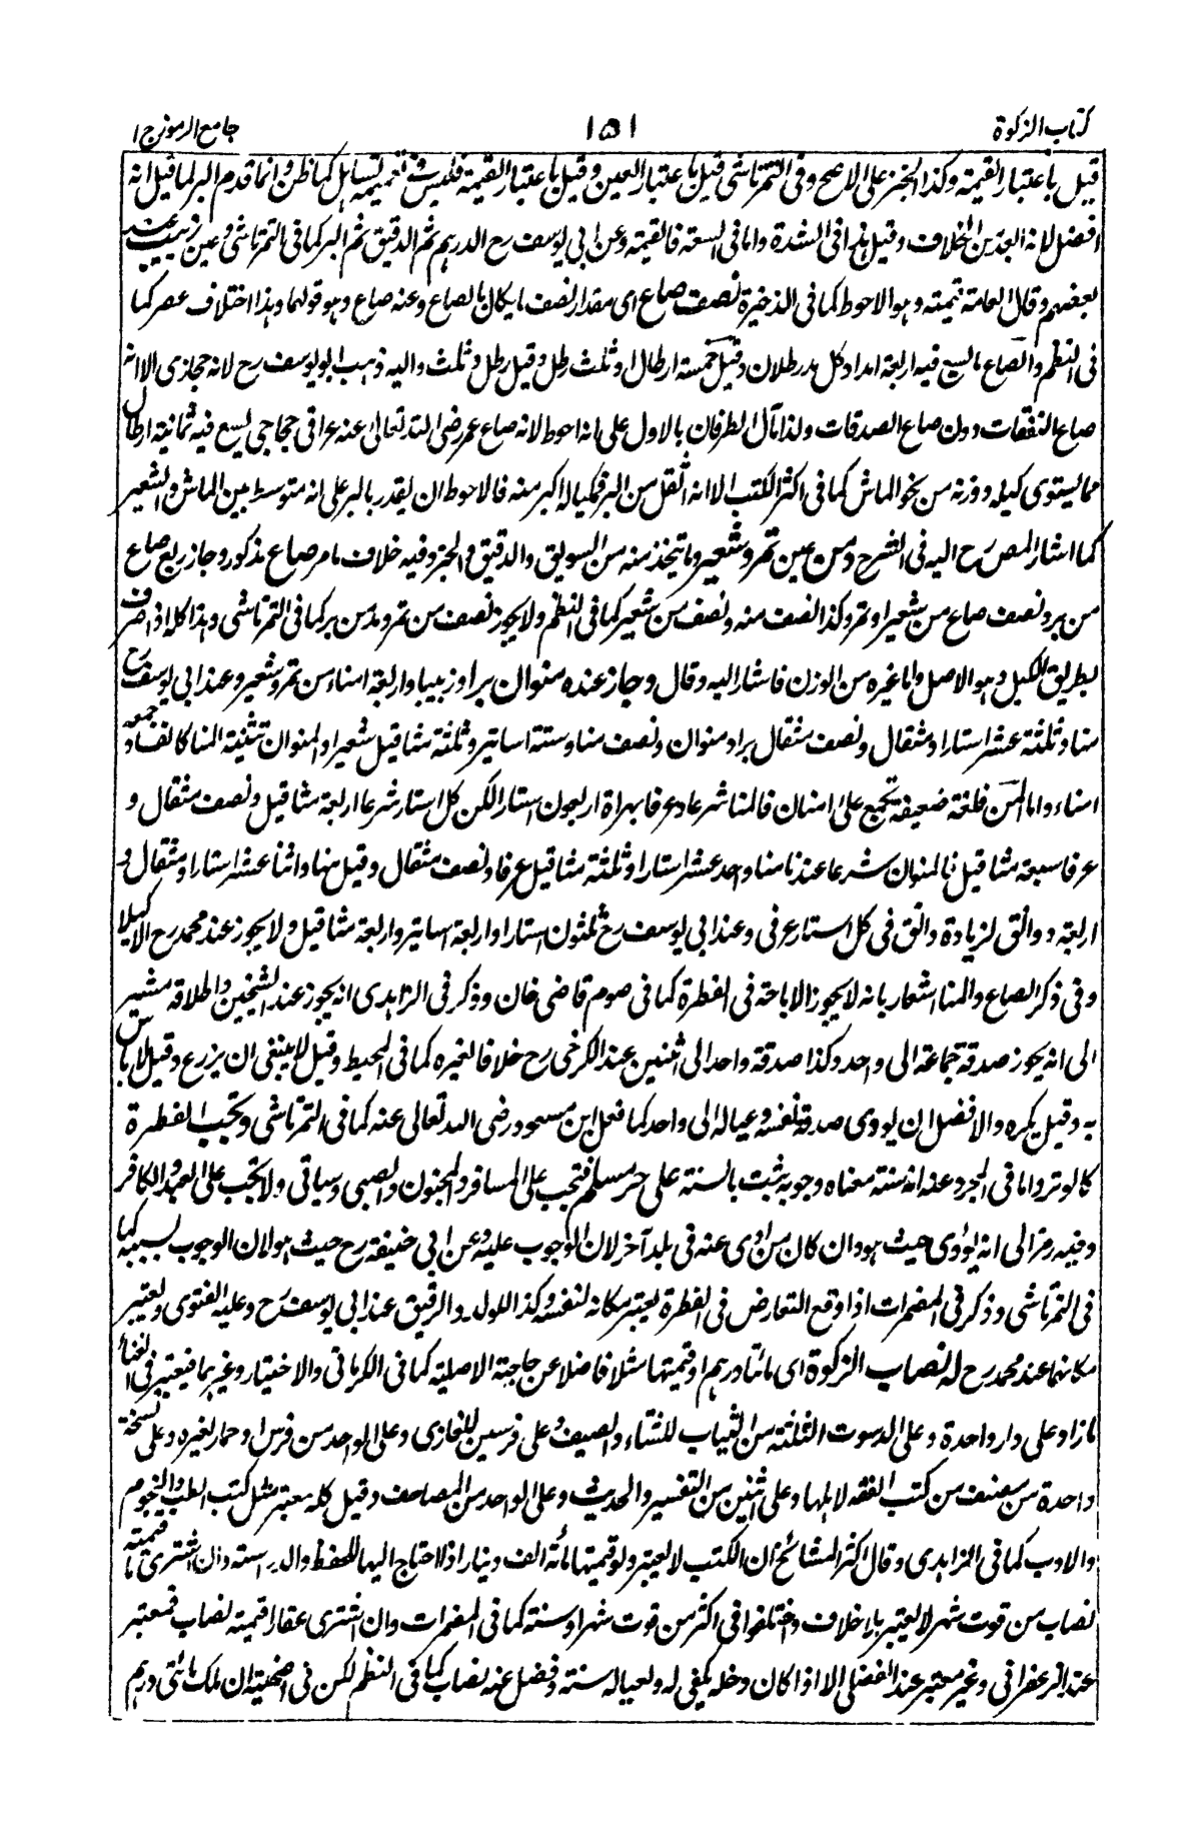 كتاب الزكوة
١٥١
جامع الرموز ج ١
قيل باعتبار القيمة وكذا الخبز على الاصح وفى التمرتاشى قيل باعتبار العين وقيل باعتبار القيمة فليس فى تعميمه تساهل كما ظن وانما قدم البر لما قيل انه
افضل لانه ابعد من الخلاف وقيل هذا فى الشدة واما فى السعة فالقيمة وعن ابى يوسف رح الدرهم ثم الدقيق ثم البر كما فى التمرتاشى وعين زبيب عند
بعضهم وقال العامة قيمته وهو الاحوط كما فى الذخيرة نصف صاع اى مقدار نصف ما يكال بالصاع وعنه صاع وهو قولهما وهذا اختلاف عصر كما
فى النظم والصاع ما يسع فيه اربعة امداد كل مد رطلان وقيل خمسة ارطال وثلث رطل وقيل رطل وثلث واليه ذهب ابو يوسف رح لانه حجازى الا انه
صاع النفقات دون صاع الصدقات ولذا مآل الطرفان بالاول على انه احوط لانه صاع عمر رضى الله تعالى عنه عراقى حجاجى يسع فيه ثمانية ارطال
مما يستوى كيله ووزنه من نحو الماش كما فى اكثر الكتب الا انه اثقل من البر فمكياله اكبر منه فالاحوط ان يقدر بالبر على انه متوسط بين الماش والشعير
كما اشار المص رح اليه فى الشرح ومن عين تمر وشعير وما يتخذ منه من السويق والدقيق والخبز وفيه خلاف ما مر صاع مذكور وجاز ربع صاع
من بر ونصف صاع من شعير او تمر وكذا نصف منه ونصف من شعير كما فى النظم ولا يجوز نصف من تمر ومد من بر كما فى التمرتاشى وهذا كله اذا صرف
بطريق الكيل وهو الاصل واما غيره من الوزن فاشار اليه وقال وجاز عنده منوان برا وزبيبا واربعة امناء من تمر وشعير وعند ابى يوسف رح
منا وثلثة عشر استارا ومثقال ونصف مثقال برا ومنوان ونصف منا وستة اساتير وثلثة مثاقيل شعيرا والمنوان تثنية المنا كالقفا وجمعه
امناء واما المن فلغة ضعيفة تجمع على امنان فالمنا شرعا وعرفا بهراة اربعون استارا لكن كل استار شرعا اربعة مثاقيل ونصف مثقال و
عرفا سبعة مثاقيل فالمنوان شرعا عندنا منا واحد عشر استارا وثلثة مثاقيل عرفا ونصف مثقال وقيل منا واثنا عشر استارا ومثقال و
اربعة دوانق لزيادة دانق فى كل استار عرفى وعند ابى يوسف رح ثلثون استارا واربعة اساتير واربعة مثاقيل ولا يجوز عند محمد رح الا كيلا
وفى ذكر الصاع والمنا اشعار بانه لا يجوز الاباحة فى الفطرة كما فى صوم قاضى خان وذكر فى الزاهدى انه يجوز عند الشيخين واطلاقه مشير
الى انه يجوز صدقة جماعة الى واحد وكذا صدقة واحد الى اثنين عند الكرخى رح خلافا لغيره كما فى المحيط وقيل لا ينبغى ان يزرع وقيل لا باس
به وقيل يكره والافضل ان يودى صدقة نفسه وعياله الى واحد كما فعل ابن مسعود رضى الله تعالى عنه كما فى التمرتاشى وتجب الفطرة
كالوتر واما فى المجرد عنه انه سنة معناه وجوبه ثبت بالسنة على حر مسلم فتجب على المسافر والمجنون والصبى وسياتى ولا تجب على العبد والكافر
وفيه رمز الى انه يؤدى حيث هو وان كان من ادى عنه فى بلد آخر لان الوجوب عليه وعن ابى حنيفة رح حيث هو لان الوجوب بسببه كما
فى التمرتاشى وذكر فى المضمرات اذا وقع التعارض فى الفطرة يعتبر مكانه لنفسه وكذا للولد والرقيق عند ابى يوسف رح وعليه الفتوى ويعتبر
مكانهما عند محمد رح له نصاب الزكوة اى مائتا درهم او قيمتها مثلا فاضلا عن حاجة الاصلية كما فى الكرمانى والاختيار وغيرهما فيعتبر فى الغناء
ما زاد على دار واحدة وعلى الدسوت الثلثة من الثياب للشتاء والصيف وعلى فرسين للغازى وعلى الواحد من فرس او حمار لغيره وعلى نسخة
واحدة من مصنف من كتب الفقه لاهلها وعلى اثنين من التفسير والحديث وعلى الواحد من المصاحف وقيل كله معتبر مثل كتب الطب والنجوم
والادب كما فى الزاهدى وقال اكثر المشائخ ان الكتب لا يعتبر ولو قيمتها مائة الف دينار اذا احتاج اليها للحفظ والدراسة وان اشترى ما قيمته
نصاب من قوت شهر لا يعتبر بلا خلاف واختلفوا فى اكثر من قوت شهر او سنة كما فى المضمرات وان اشترى عقارا قيمته نصاب فمعتبر
عند الزعفرانى وغير معتبر عند الفضلى الا اذا كان دخله يكفى له ولعياله سنة وفضل عنه نصاب كما فى النظم لكن فى اضحيته ان ملك مائتى درهم